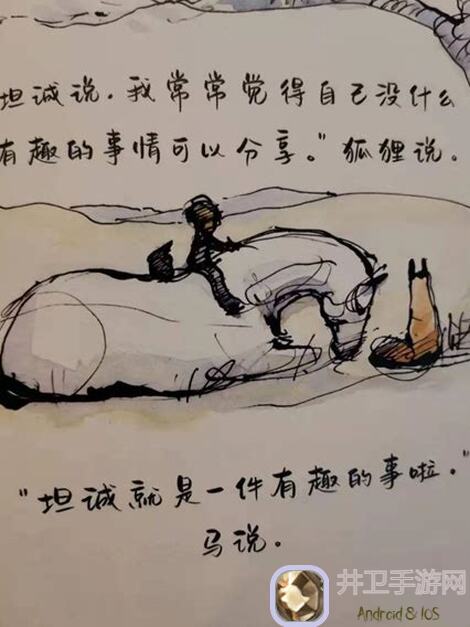 坦诚说,我常常觉得自己没什么
有趣的事情可以分享。”狐狸说。
“坦诚就是一件有趣的事啦。”
马说。
井卫手游网
Android & IOS